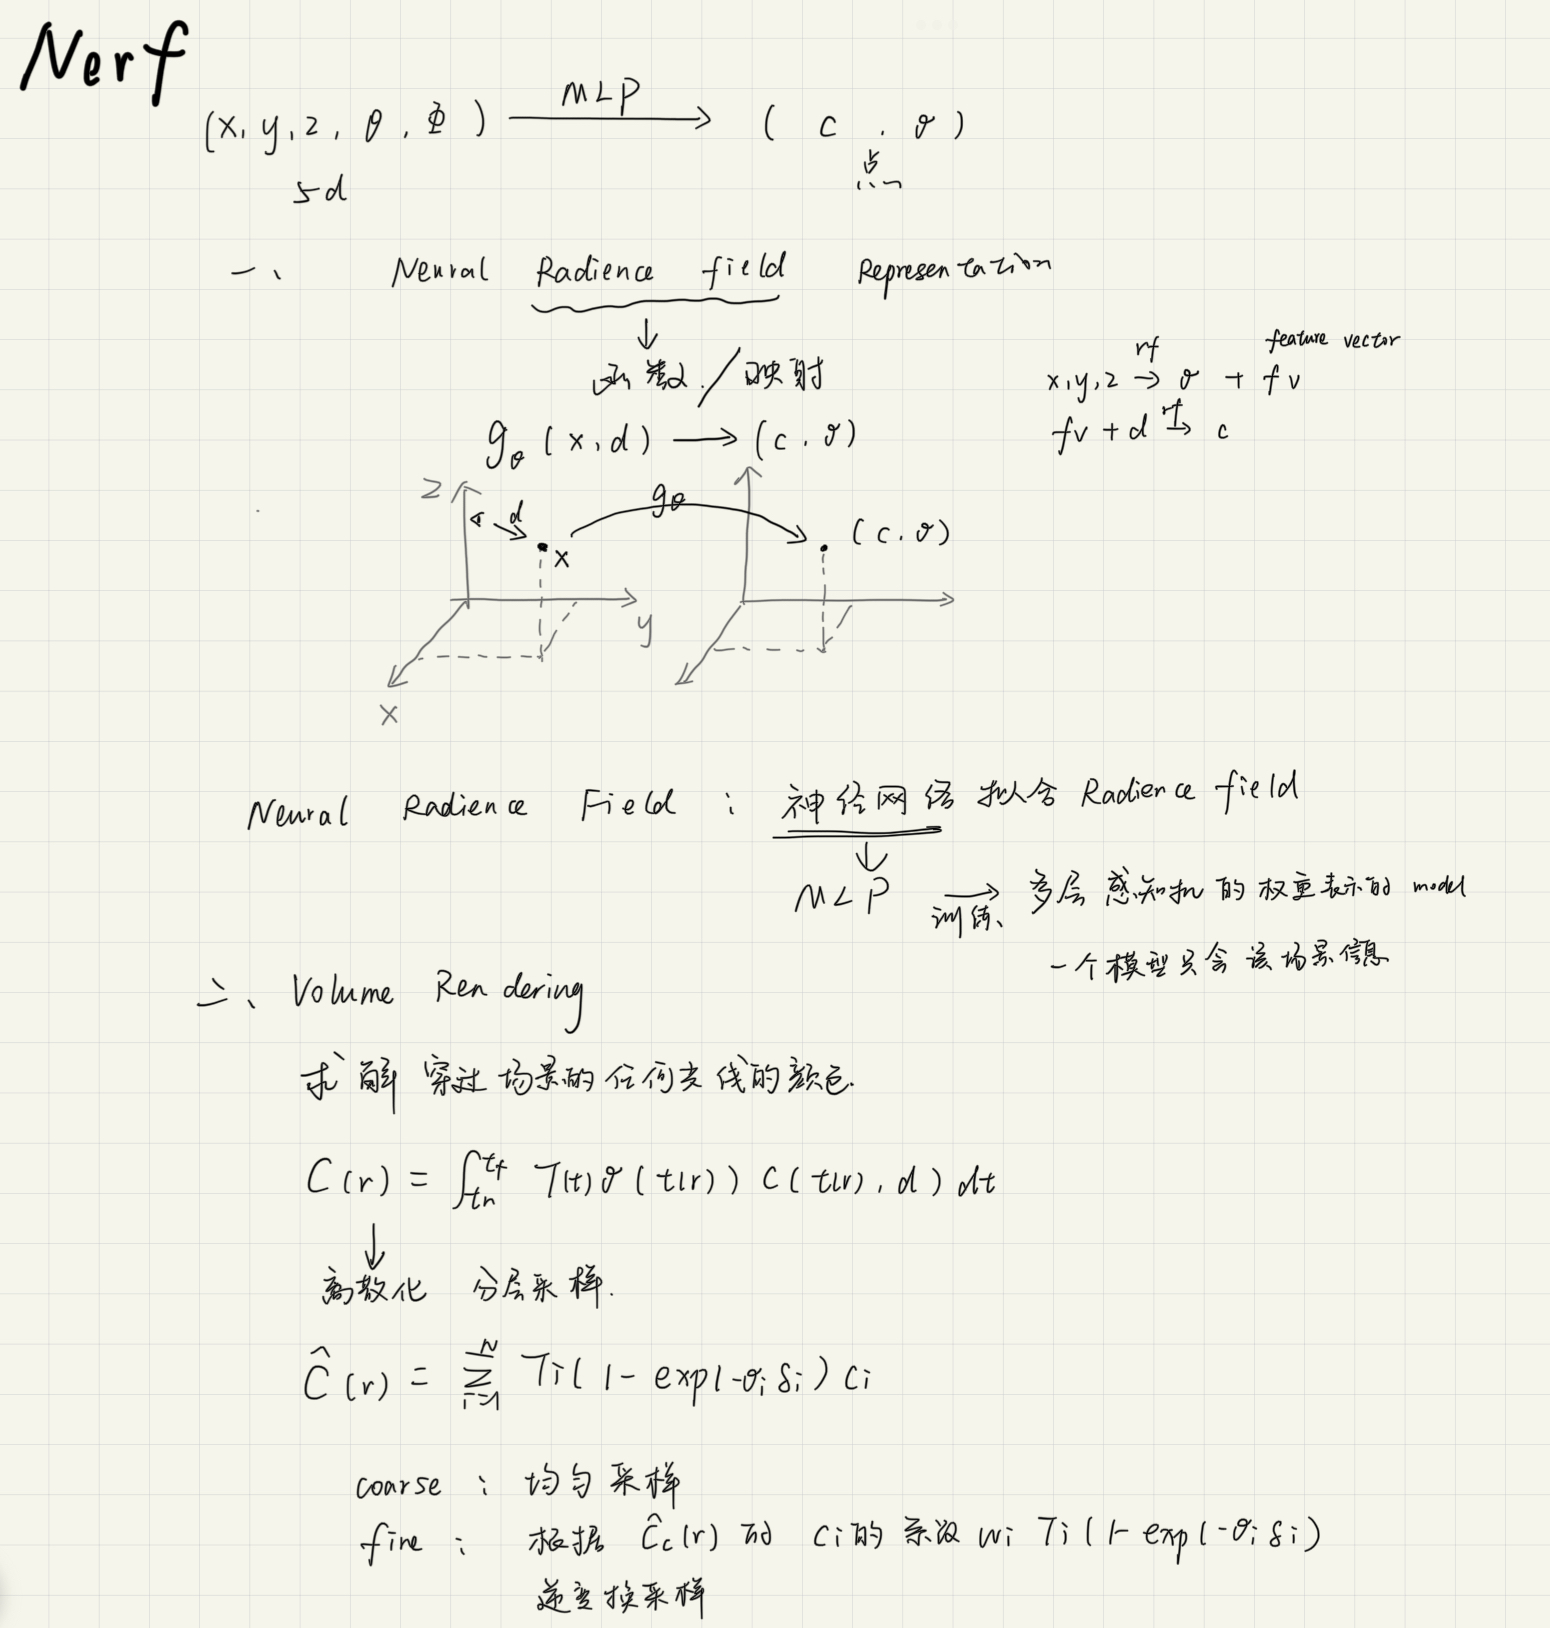 Nerf
(x, y, z, θ, Φ) MLP → (c, σ)
5d 点
一、 Neural Radience field Representation
↓
函数 / 映射
g_θ (x, d) → (c, σ)
feature vector
x, y, z rf → σ + fv
fv + d rf → c
z d x g_θ (c, σ)
y
x
Neural Radience Field : 神经网络 拟合 Radience field
↓
MLP → 训练、 多层感知机的权重表示的 model
一个模型只含该场景信息
二、 Volume Rendering
求解穿过场景的任何光线的颜色.
C(r) = ∫_{tn}^{tf} T(t) σ(t(r)) C(t(r), d) dt
↓
离散化 分层采样.
Ĉ(r) = Σ_{i=1}^{N} Ti(1- exp(-σi δi) ci
coarse : 均匀采样
fine : 根据 Ĉc(r) 的 ci的系数 wi Ti(1- exp(-σi δi)
逆变换采样